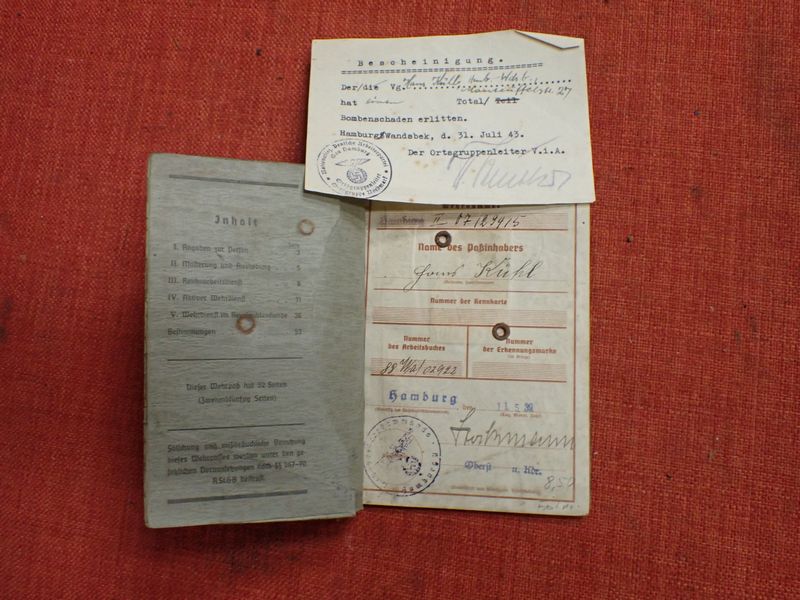 Bescheinigung.
Der/die Vg. Hans Kühl, Hmb. Wdsb.,
hat einen Total/ Teil
Bombenschaden erlitten.
Hamburg/Wandsbek, d. 31. Juli 43.
Der Ortsgruppenleiter V.i.A.
Inhalt
Seite
I. Angaben zur Person 3
II. Musterung und Aushebung 5
III. Reichsarbeitsdienst 8
IV. Aktiver Wehrdienst 11
V. Wehrdienst im Beurlaubtenstande 36
Bestimmungen 53
Dieser Wehrpaß hat 52 Seiten
(Zweiundfünfzig Seiten)
Fälschung und mißbräuchliche Benutzung
dieses Wehrpasses werden unter den ge-
setzlichen Voraussetzungen nach §§ 267-70
RStGB bestraft.
Hamburg II
Name des Paßinhabers
Hans Kühl
Nummer der Kennkarte
Nummer
des Arbeitsbuches
Nummer
der Erkennungsmarke
88 Wa/02922
Hamburg den 11.5.39
Oberst u. Kdr.
8,50